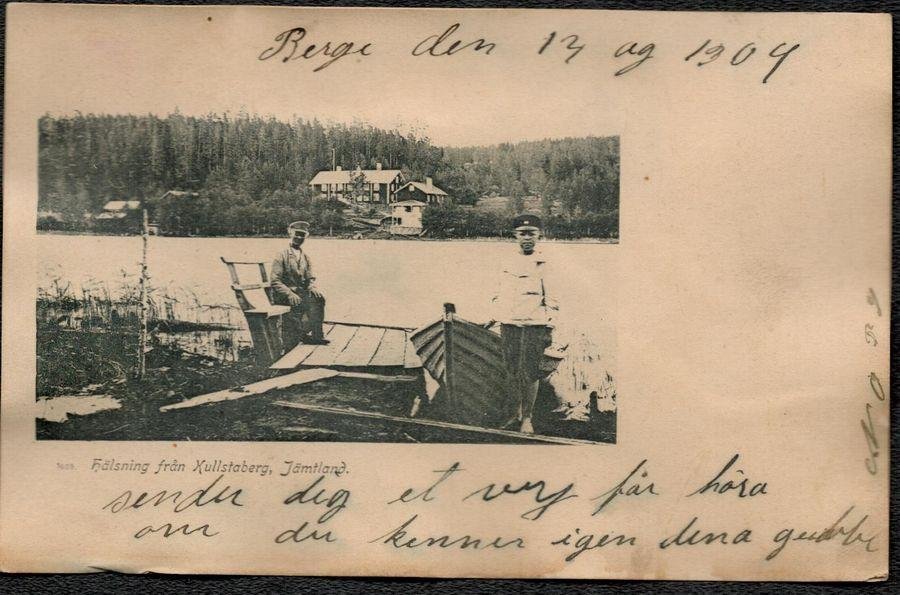 Berge den 13 ag 1904
Hälsning från Kullstaberg, Jämtland.
sender dig et vey får höra
om du kenner igen dena gubbe